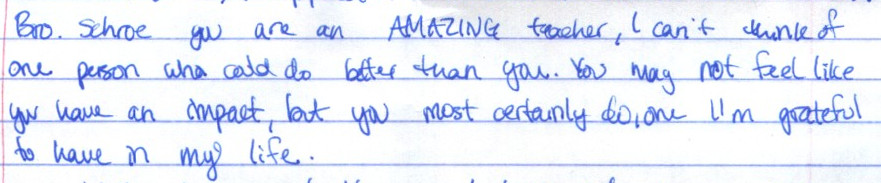 Bro. Schroe you are an AMAZING teacher, I can't think of
one person who could do better than you. You may not feel like
you have an impact, but you most certainly do, one I'm grateful
to have in my life.